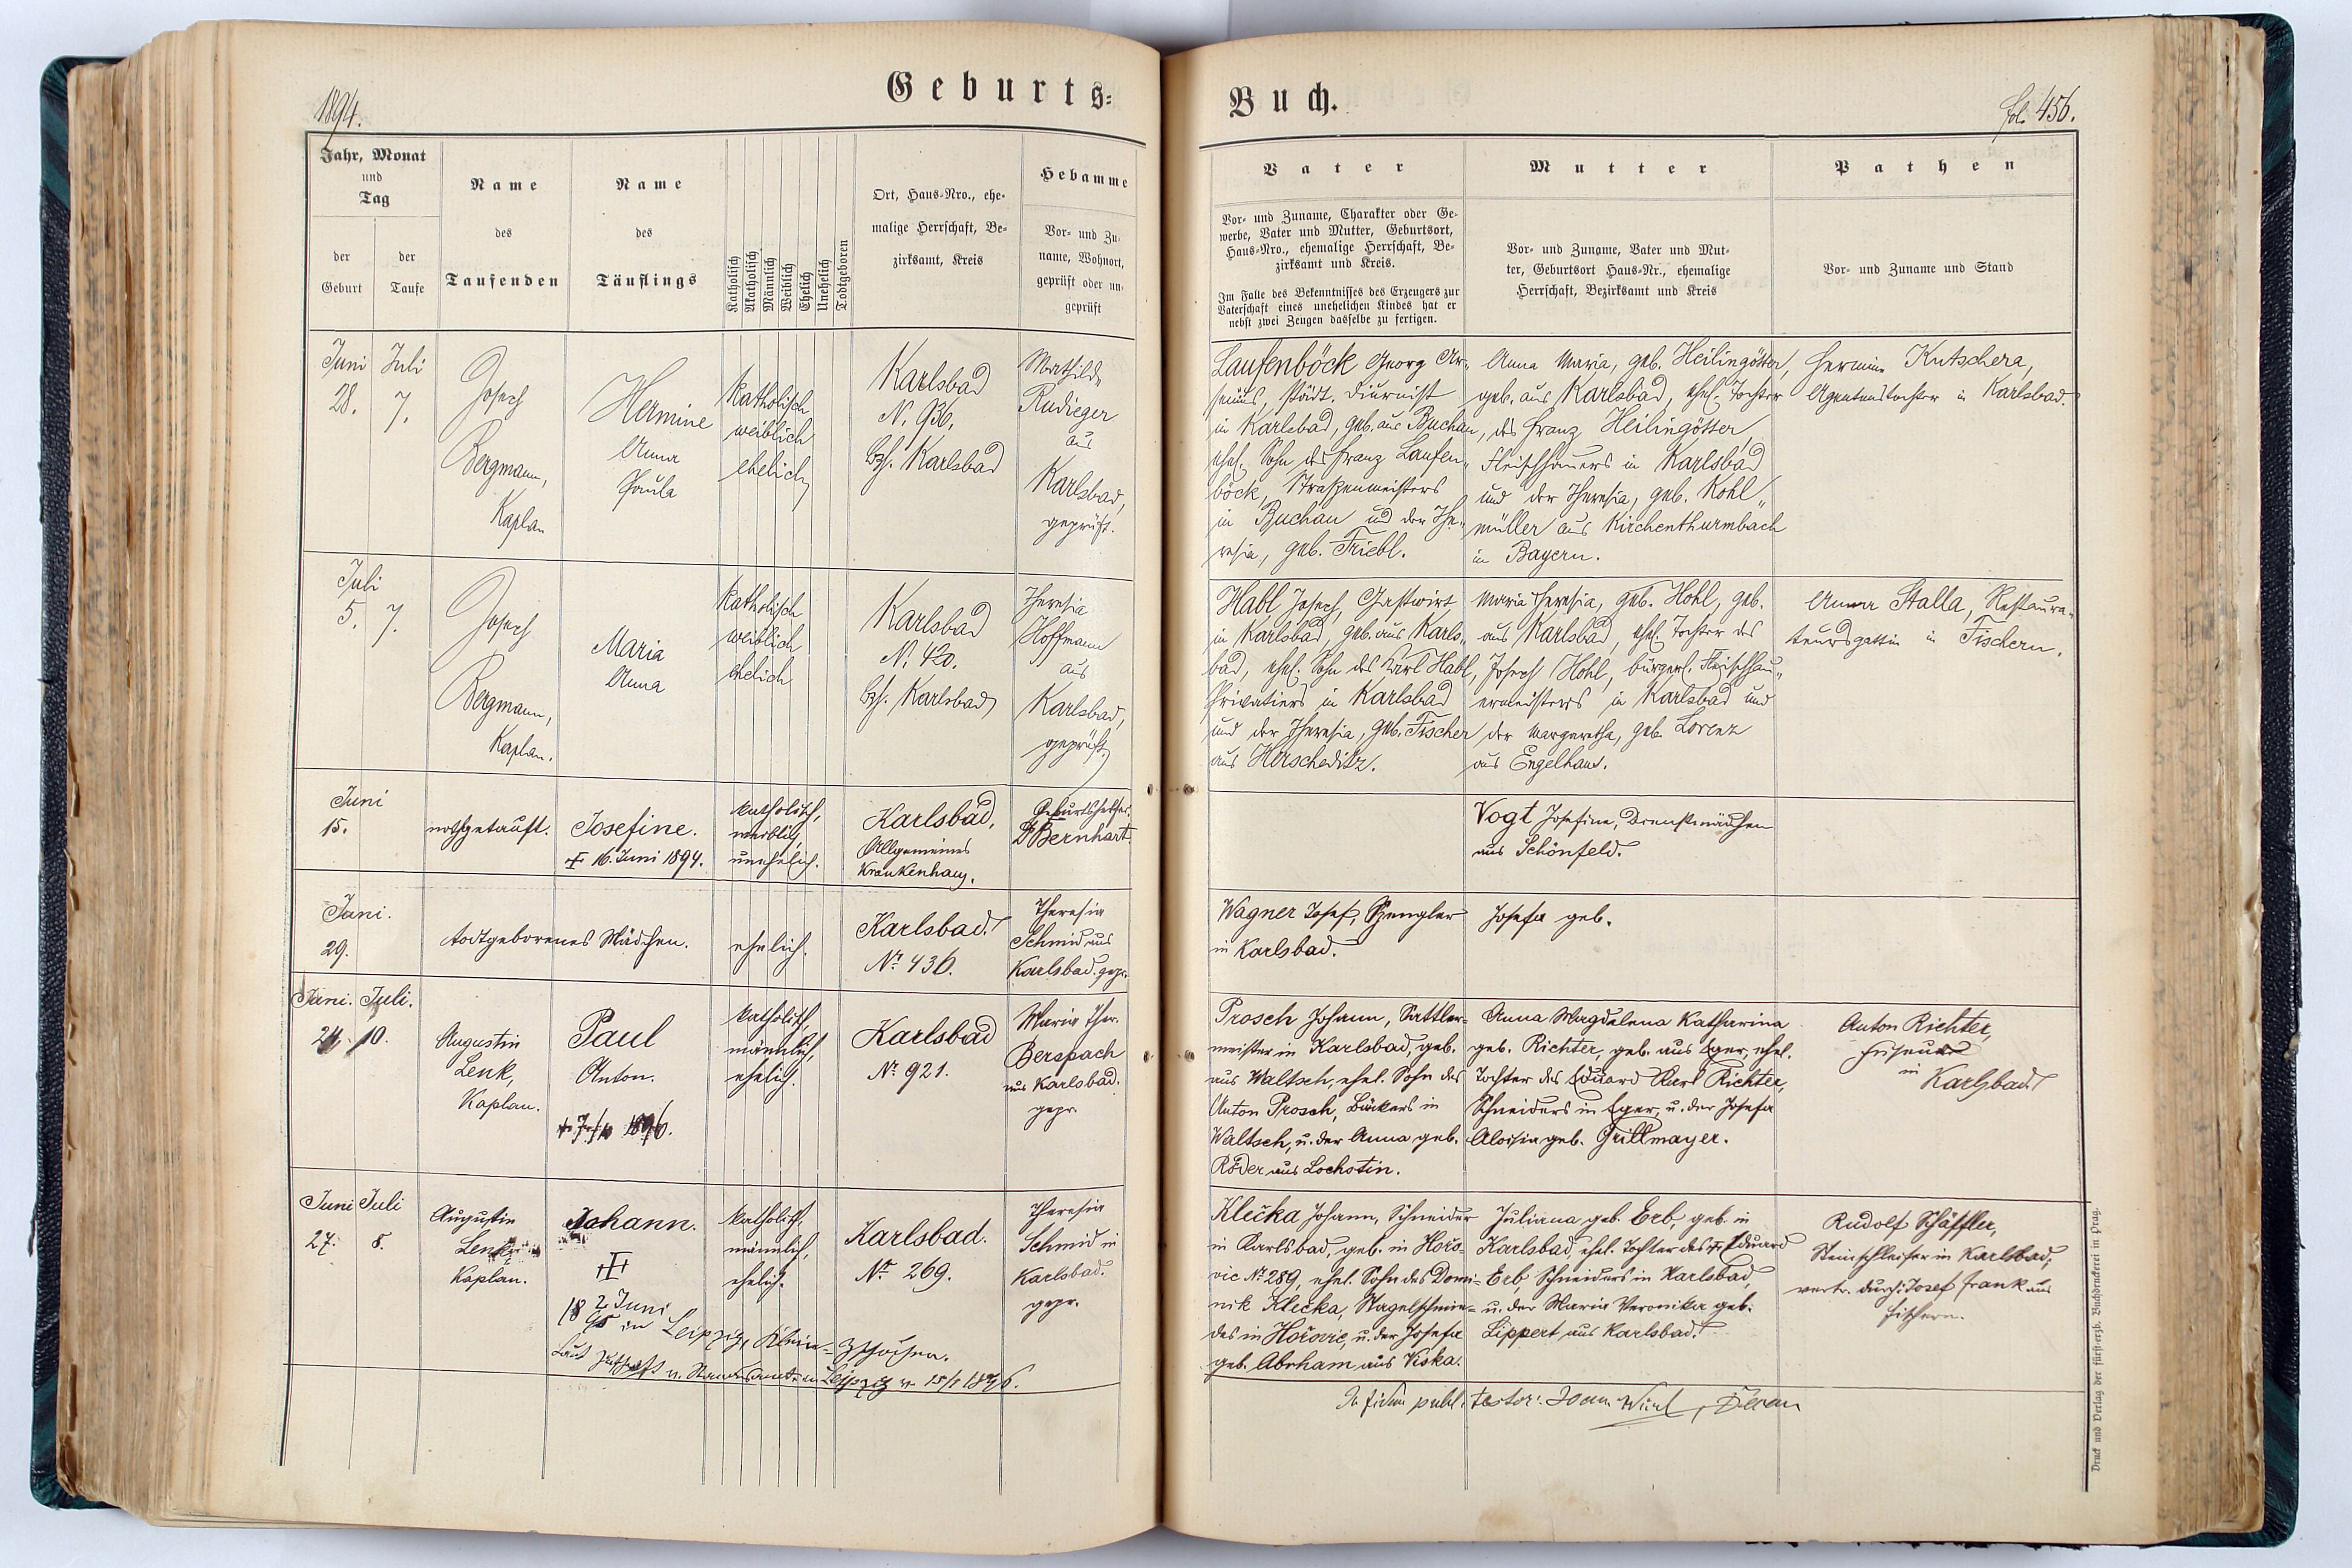 1894.
Geburts=
Jahr, Monat
und
Tag
der
Geburt
der
Taufe
Name
des
Taufenden
Name
des
Täuflings
Katholisch
Akatholisch
Männlich
Weiblich
Ehelich
Unehelich
Todtgeboren
Ort, Haus=Nro., ehe=
malige Herrschaft, Be=
zirksamt, Kreis
Hebamme
Vor= und Zu=
name, Wohnort,
geprüft oder un=
geprüft
Juni
28.
Juli
7.
Josef
Bergmann,
Kaplan
Hermine
Anna
Paula
katholisch
weiblich
ehelich
Karlsbad
N. 936,
Bzh. Karlsbad
Mathilde
Rudieger
aus
Karlsbad,
geprüft.
Juli
5.
7.
Josef
Bergmann,
Kaplan.
Maria
Anna
katholisch
weiblich
ehelich
Karlsbad
N. 420.
Bzh. Karlsbad
Theresia
Hoffmann
aus
Karlsbad,
geprüft.
Juni
15.
nothgetauft.
Josefine.
+ 16. Juni 1894.
katholisch,
weiblich,
unehelich.
Karlsbad,
Allgemeines
Krankenhaus.
Geburtshelfer
Dr Bernhart.
Juni.
29.
todtgeborenes Mädchen.
ehelich.
Karlsbad.
No 436.
Theresia
Schmid aus
Karlsbad. gepr.
Juni.
24.
Juli.
10.
Augustin
Lenk,
Kaplan.
Paul
Anton.
1896.
katholisch,
männlich,
ehelich.
Karlsbad
No 921.
Maria Ther.
Berspach
aus Karlsbad.
gepr.
Juni
27.
Juli
8.
Augustin
Lenk,
Kaplan.
Johann.
2 Juni
1895 in Leipzig, Klein=Zschocher.
Laut Zuschrift v. Standesamt in Leipzig v. 15/1 1896.
katholisch,
männlich,
ehelich.
Karlsbad.
No 269.
Theresia
Schmid in
Karlsbad.
gepr.
Buch.
fol. 456.
Vater
Vor= und Zuname, Charakter oder Ge=
werbe, Vater und Mutter, Geburtsort,
Haus=Nro., ehemalige Herrschaft, Be=
zirksamt und Kreis.
Im Falle des Bekenntnisses des Erzeugers zur
Vaterschaft eines unehelichen Kindes hat er
nebst zwei Zeugen dasselbe zu fertigen.
Mutter
Vor= und Zuname, Vater und Mut=
ter, Geburtsort Haus=Nr., ehemalige
Herrschaft, Bezirksamt und Kreis
Pathen
Vor= und Zuname und Stand
Laufenböck Georg Ar=
senius, städt. Diurnist
in Karlsbad, geb. aus Buchau,
ehel. Sohn des Franz Laufen=
böck, Straßenmeisters
in Buchau und der The=
resia, geb. Triebl.
Anna Maria, geb. Heilingötter,
geb. aus Karlsbad, ehel. Tochter
des Franz Heilingötter,
Fleischhauers in Karlsbad
und der Theresia, geb. Kohl=
müller aus Kirchenthurmbach
in Bayern.
Hermine Kutschera,
Agentenstochter in Karlsbad.
Habl Josef, Gastwirt
in Karlsbad, geb. aus Karls=
bad, ehel. Sohn des Karl Habl,
Privatiers in Karlsbad
und der Theresia, geb. Fischer
aus Hirscheditz.
Maria Theresia, geb. Hohl, geb.
aus Karlsbad, ehel. Tochter des
Josef Hohl, bürgerl. Fleischhau=
ermeisters in Karlsbad und
der Margaretha, geb. Lorenz
aus Engelhaus.
Anna Stalla, Restaura=
teursgattin in Fischern.
Vogt Josefine, Dienstmädchen
aus Schönfeld.
Wagner Josef, Spengler
in Karlsbad.
Josefa geb.
Prosch Johann, Sattler=
meister in Karlsbad, geb.
aus Waltsch, ehel. Sohn des
Anton Prosch, Bäckers in
Waltsch, u. der Anna geb.
Röder aus Lochotin.
Anna Magdalena Katharina
geb. Richter, geb. aus Eger, ehel.
Tochter des Eduard Karl Richter,
Schneiders in Eger, u. der Josefa
Aloisia geb. Grillmayer.
Anton Richter,
Friseur
in
Karlsbad.
Klečka Johann, Schneider
in Karlsbad, geb. in Hořo=
vic No 289, ehel. Sohn des Domi=
nik Klečka, Nagelschmie=
des in Hořovic, u. der Josefa
geb. Abrham aus Viska.
Juliana geb. Erb, geb. in
Karlsbad, ehel. Tochter des + Eduard
Erb, Schneiders in Karlsbad,
u. der Maria Veronika geb.
Lippert aus Karlsbad.
Rudolf Schäffler,
Steinschleifer in Karlsbad,
vertr. durch: Josef Frank aus
Fischern.
In fidem publ. testor:
Druck und Verlag der fürst=erzb. Buchdruckerei in Prag.